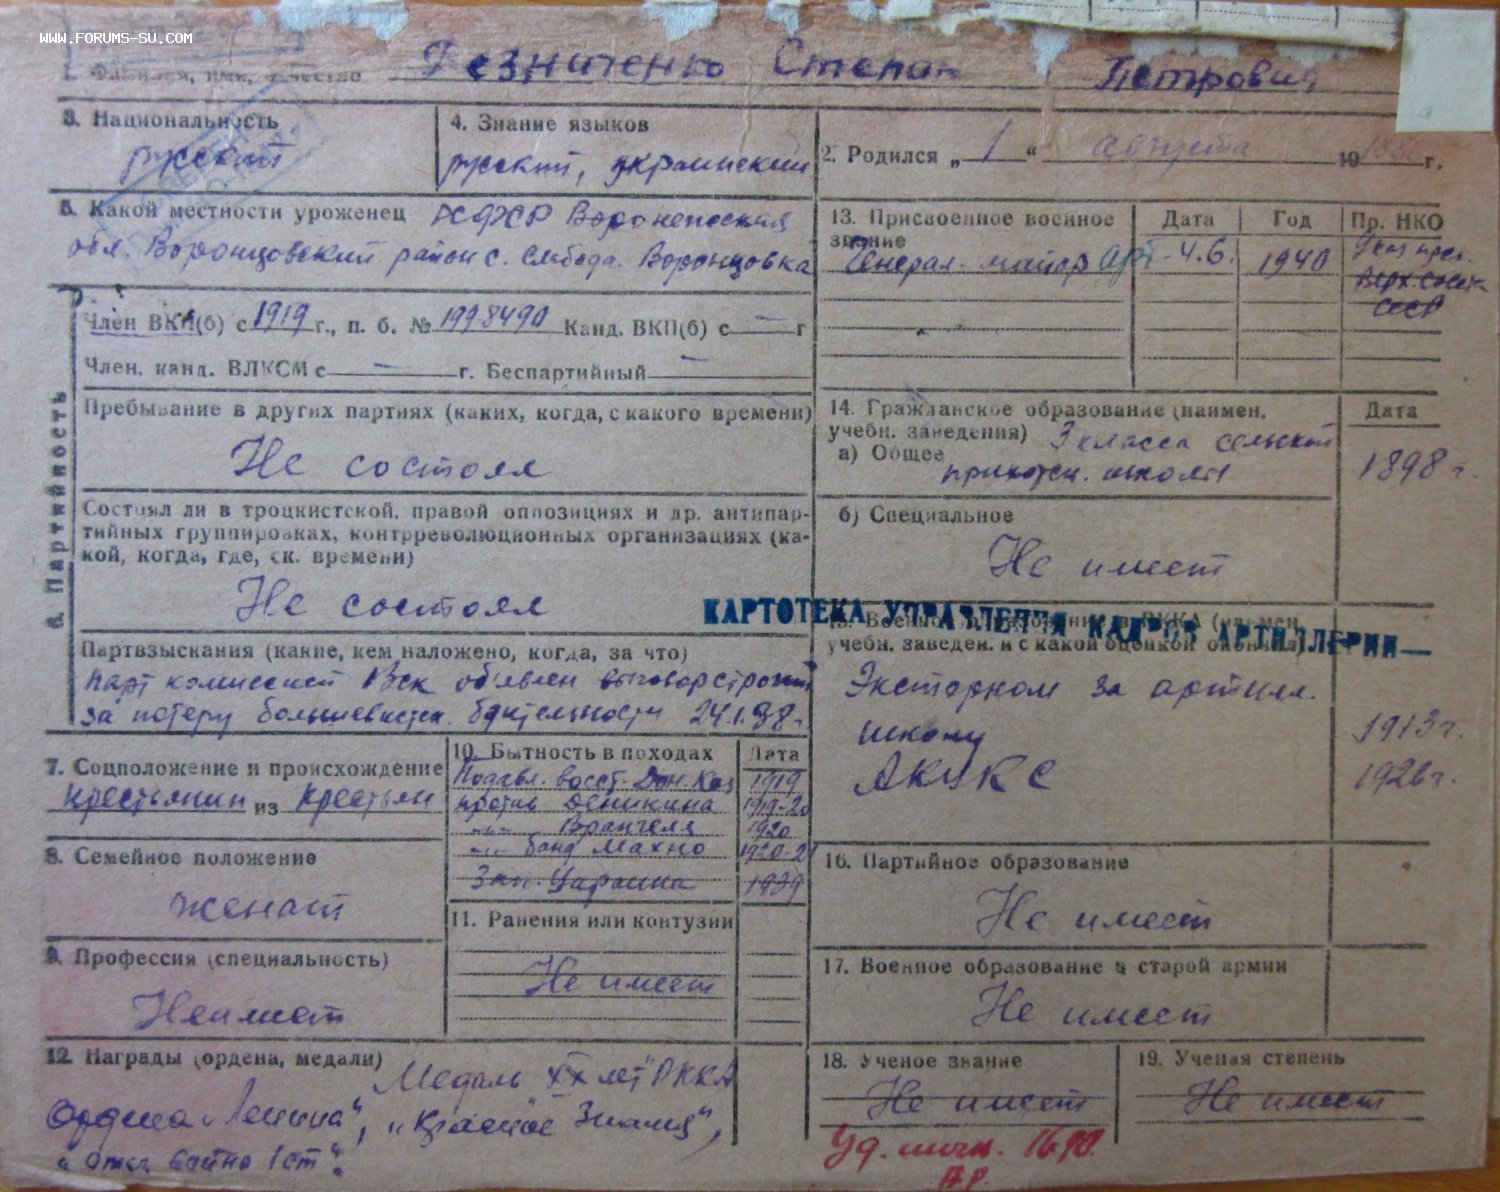 WWW.FORUMS-SU.COM
1. Фамилия, имя, отчество Резниченко Степан Петрович
3. Национальность
русский
4. Знание языков
русский, украинский
2. Родился „ 1 “ августа 19 г.
5. Какой местности уроженец РСФСР Воронежская
обл. Воронцовский район с. Слобода Воронцовка
13. Присвоенное военное звание
Дата
Год
Пр. НКО
Генерал-майор арт. 4.6. 1940 Указ през.
Верх. Совета
СССР
6. Партийность
Член ВКП(б) с 1919 г., п. б. № 1998490 Канд. ВКП(б) с — г
Член. канд. ВЛКСМ с — г. Беспартийный —
Пребывание в других партиях (каких, когда, с какого времени)
Не состоял
Состоял ли в троцкистской, правой оппозициях и др. антипар-
тийных группировках, контрреволюционных организациях (ка-
кой, когда, где, ск. времени)
Не состоял
Партвзыскания (какие, кем наложено, когда, за что)
Парт комиссией ВСК об'явлен выговор строгий
за потерю большевистск. бдительности 24.1.38 г.
14. Гражданское образование (наимен.
учебн. заведения)
Дата
а) Общее 3 класса сельской
приходск. школы 1898 г.
б) Специальное
Не имеет
КАРТОТЕКА УПРАВЛЕНИЯ КАДРОВ АРТИЛЛЕРИИ—
15. Военное образование в РККА (наимен.
учебн. заведен. и с какой оценкой окончил)
Экстерном за артилл.
школу 1913 г.
АКУКС 1926 г.
7. Соцположение и происхождение
крестьянин из крестьян
8. Семейное положение
женат
9. Профессия (специальность)
Не имеет
10. Бытность в походах
Дата
Подавл. восст. Дон. Каз 1919
против Деникина 1919-20
-„- Врангеля 1920
-„- банд Махно 1920-21
Зап. Украина 1939
11. Ранения или контузии
Не имеет
16. Партийное образование
Не имеет
17. Военное образование в старой армии
Не имеет
12. Награды (ордена, медали)
Медаль "XX лет РККА
Ордена „Ленина“, „Красное Знамя“,
„Отеч. война 1 ст“.
18. Ученое звание
Не имеет
19. Ученая степень
Не имеет
Уд. личн. 1690.